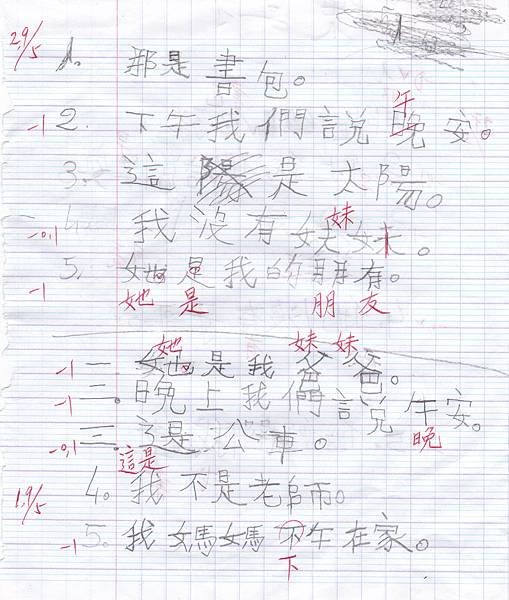 2,9/5
1. 那是書包。
午
-1 2. 下午我們說晚安。
3. 這是太陽。
妹
-0,1 4. 我沒有妹妹。
5. 她是我的朋有。
-1 她 是 朋 友
她 妹 妹
-1 一 她是我爸爸。
-1 二。晚上我們說午安。
晚
-0,1 三 這是公車。
這是
1,9/5 4. 我不是老師。
-1 5. 我媽媽不午在家。
下